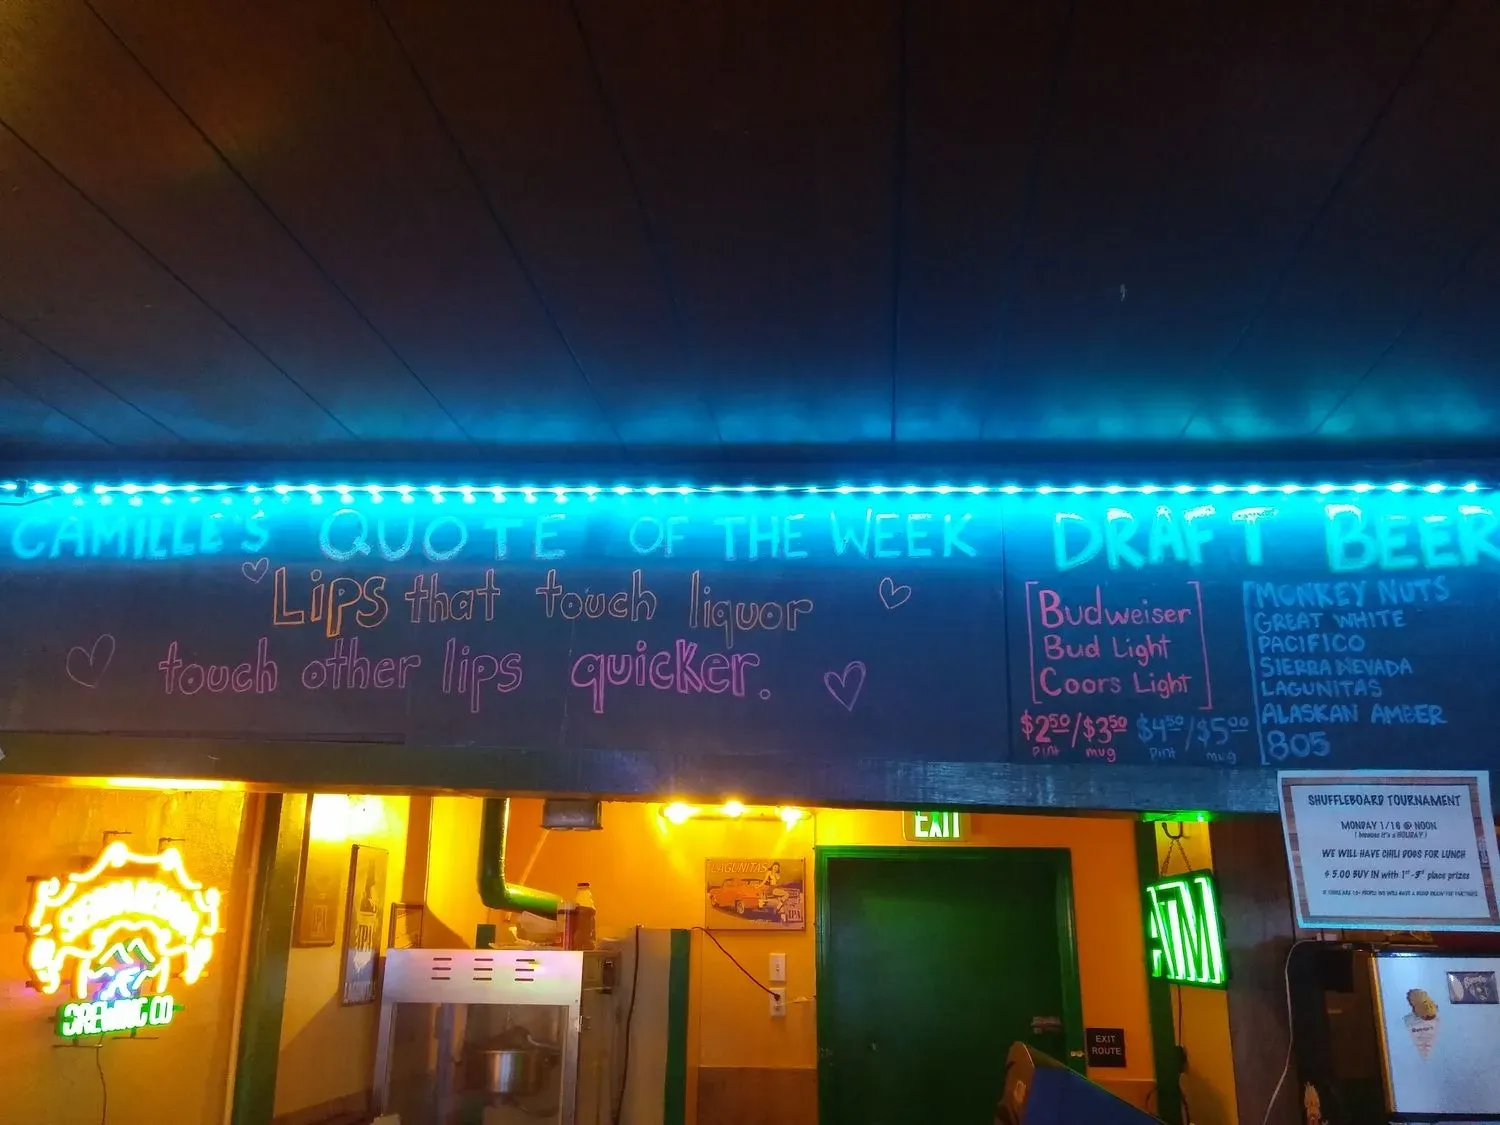 CAMILLE'S QUOTE OF THE WEEK
Lips that touch liquor
touch other lips quicker.
DRAFT BEER
Budweiser
Bud Light
Coors Light
$2.50/$3.50
pint mug
$4.50/$5.00
pint mug
MONKEY NUTS
GREAT WHITE
PACIFICO
SIERRA NEVADA
LAGUNITAS
ALASKAN AMBER
805
SHUFFLEBOARD TOURNAMENT
MONDAY 1/16 @ NOON
( because it's a HOLIDAY )
WE WILL HAVE CHILI DOGS FOR LUNCH
$ 5.00 BUY IN with 1st -3rd place prizes
EXIT
LAGUNITAS
IPA
EXIT
ROUTE
BREWING CO
IPA